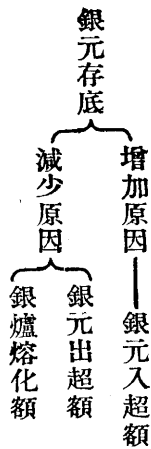 銀元存底
增加原因
銀元入超額
減少原因
銀元出超額
銀爐熔化額